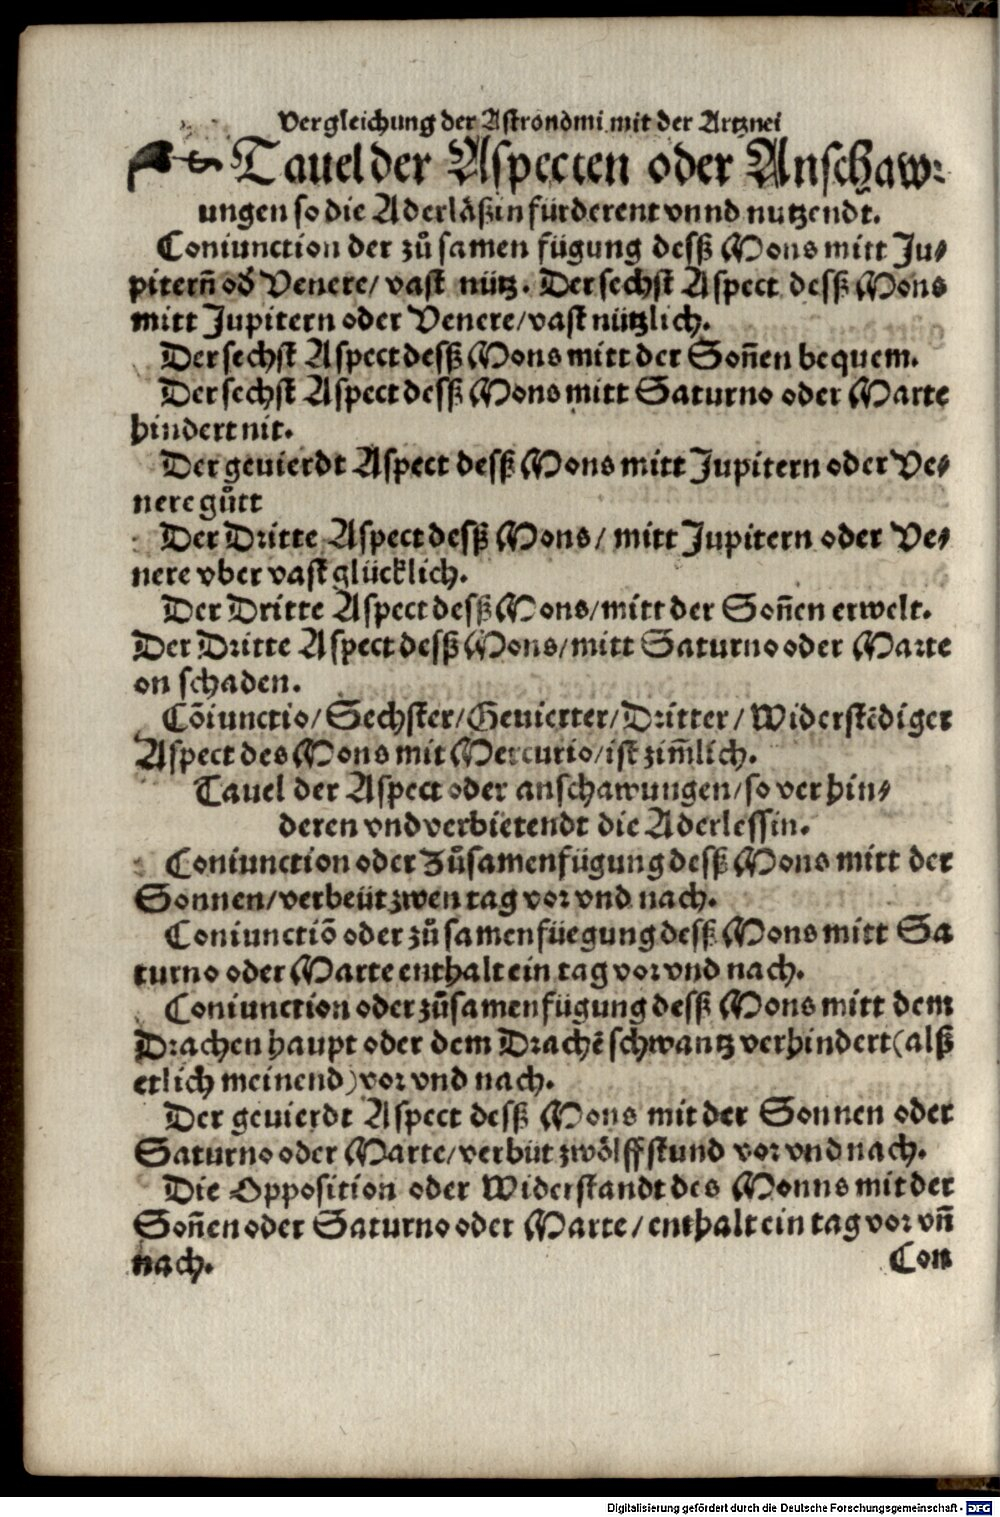 Vergleichung der Astronomi mit der Artznei
Tauel der Aspecten oder Anschaw⸗
ungen so die Aderläßin fürderent vnnd nutzendt.
Coniunction der zůsamen fügung desß Mons mitt Ju⸗
piterñ od̕ Venere/ vast nütz. Der sechst Aspect desß Mons
mitt Jupitern oder Venere/ vast nützlich.
Der sechst Aspect desß Mons mitt der Soñen bequem.
Der sechst Aspect desß Mons mitt Saturno oder Marte
hindert nit.
Der geuierdt Aspect desß Mons mitt Jupitern oder Ve⸗
nere gůtt
Der Dritte Aspect desß Mons/ mitt Jupitern oder Ve⸗
nere vber vast glücklich.
Der Dritte Aspect desß Mons/ mitt der Soñen erwelt.
Der Dritte Aspect desß Mons/ mitt Saturno oder Marte
on schaden.
Cõiunctio/ Sechster/ Geuierter/ Dritter/ Widerstẽdiger
Aspect des Mons mit Mercurio/ ist zim̃lich.
Tauel der Aspect oder anschawungen/ so verhin⸗
deren vnd verbietendt die Aderlessin.
Coniunction oder Zůsamenfügung desß Mons mitt der
Sonnen/ verbeüt zwen tag vor vnd nach.
Coniunctiõ oder zůsamenfüegung desß Mons mitt Sa
turno oder Marte enthalt ein tag vor vnd nach.
Coniunction oder zůsamenfügung desß Mons mitt dem
Drachen haupt oder dem Drachẽ schwantz verhindert (alß
etlich meinend) vor vnd nach.
Der geuierdt Aspect desß Mons mit der Sonnen oder
Saturno oder Marte/ verbüt zwölff stund vor vnd nach.
Die Opposition oder Widerstandt des Monns mit der
Soñen oder Saturno oder Marte/ enthalt ein tag vor vñ
nach. Con
Digitalisierung gefördert durch die Deutsche Forschungsgemeinschaft - DFG